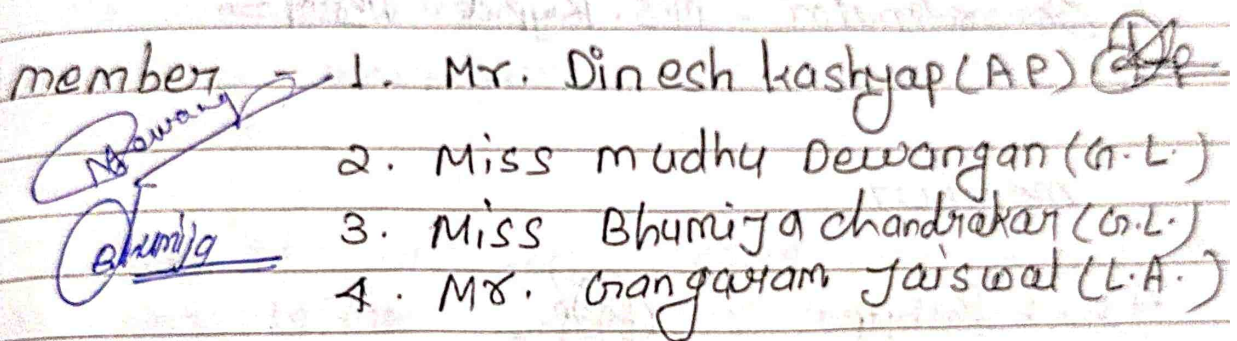 member - 1. Mr. Dinesh kashyap (AP)
Dewang
2. Miss mudhu Dewangan (G.L.)
Bhumija
3. Miss Bhumija chandrakar (G.L.)
4. Mr. Gangaram Jaiswal (L.A.)